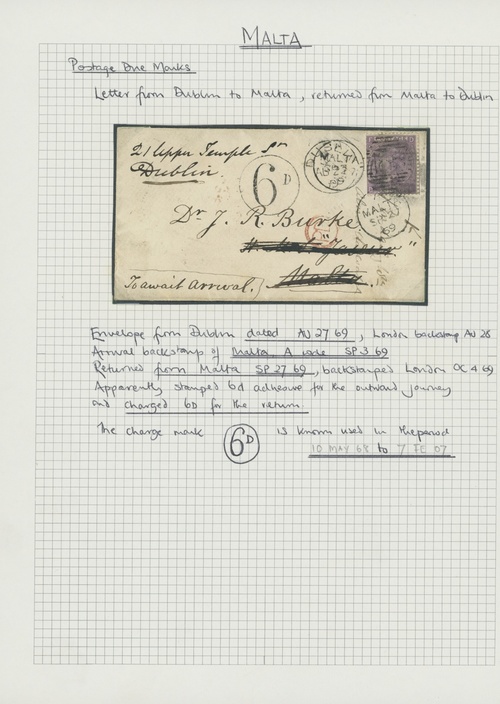 MALTA
Postage Due Marks
Letter from Dublin to Malta, returned from Malta to Dublin
21 Upper Temple St
Dublin.
6D
DUBLIN
MALTA
69
Dr J. R. Burke
Malta
To await Arrival.
Envelope from Dublin dated AU 27 69, London backstamp AU 28
Arrival backstamp of Malta A code SP 3 69
Returned from Malta SP 27 69, backstamped London OC 4 69
Apparently stamped 6d adhesive for the outward journey
and charged 6D for the return.
The charge mark 6D is known used in the period
10 MAY 68 to 7 FE 07